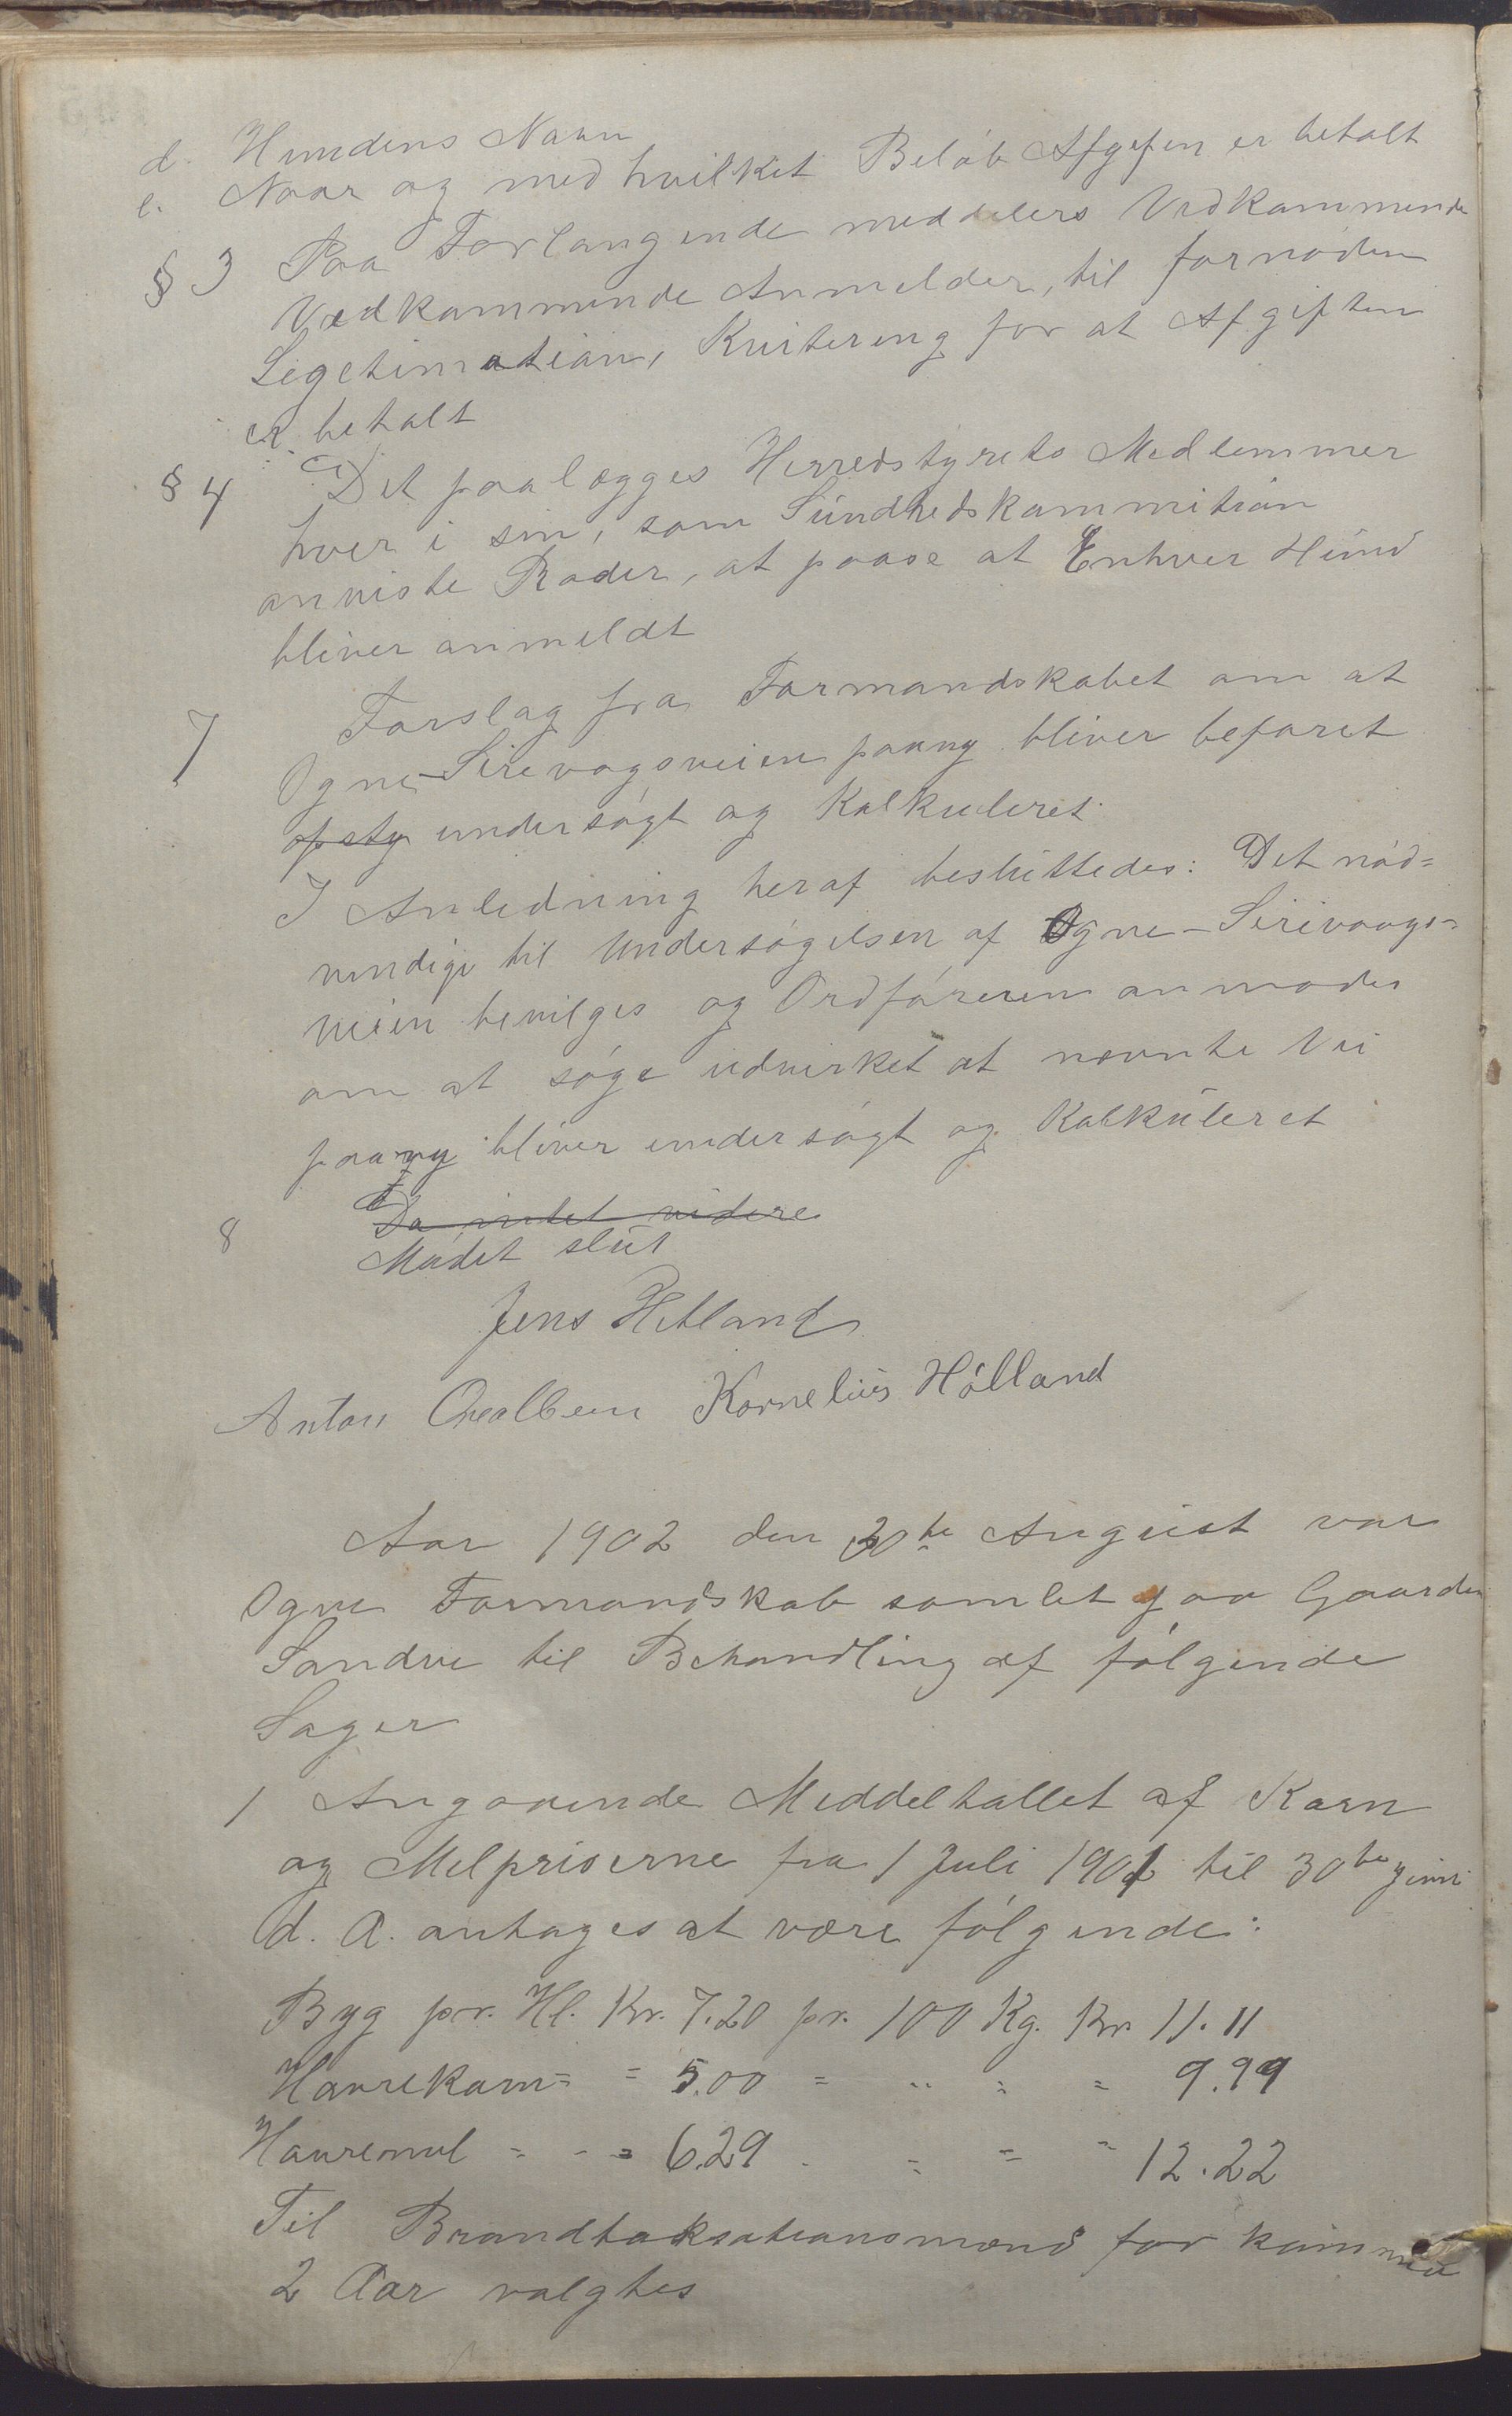 d. Hundens Navn
e. Naar og med hvilket Beløb Afgifen er betalt
§ 3 Paa Forlangende meddelers Vedkommende
Vedkommende Anmelder, til fornøden
Legetimation, Kvitering for at Afgiften
er betalt
§ 4 Det paalægges Herredstyrets Medlemmer
hver i sin, som Sundhedskommition
anviste Roder, at paase at Enhver Hund
bliver anmeldt
7 Forslag fra Formandskabet om at
Ogne-Sirevagsveien paany bliver befaret
opsty undersøgt og Kalkuleret
I Anledning heraf besluttedes: Det nød=
vendige til Undersøgelsen af Ogne-Sirivaags-
veien bevilges og Ordføreren anmodes
om at søge udvirket at nævnte Vei
paany bliver undersøgt og Kalkuleret
8 Da intet videre
Mødet slut
Jens Hetland
Anton Kornelius Hølland
Aar 1902 den 30te August var
Ogne Formandskab samlet paa Gaarden
Sandve til Behandling af følgende
Sager
1 Angaaende Middeltallet af Korn
og Melpriserne fra 1 Juli 1901 til 30te Juni
d. A. antages at være følgende:
Byg pr. Hl. Kr. 7.20 pr. 100 Kg. Kr. 11.11
Havrekorn = = 5.00 = " = = 9.99
Havremel = - = 6.29 . = = = 12.22
Til Brandtaksationsmænd for komme
2 Aar valgtes